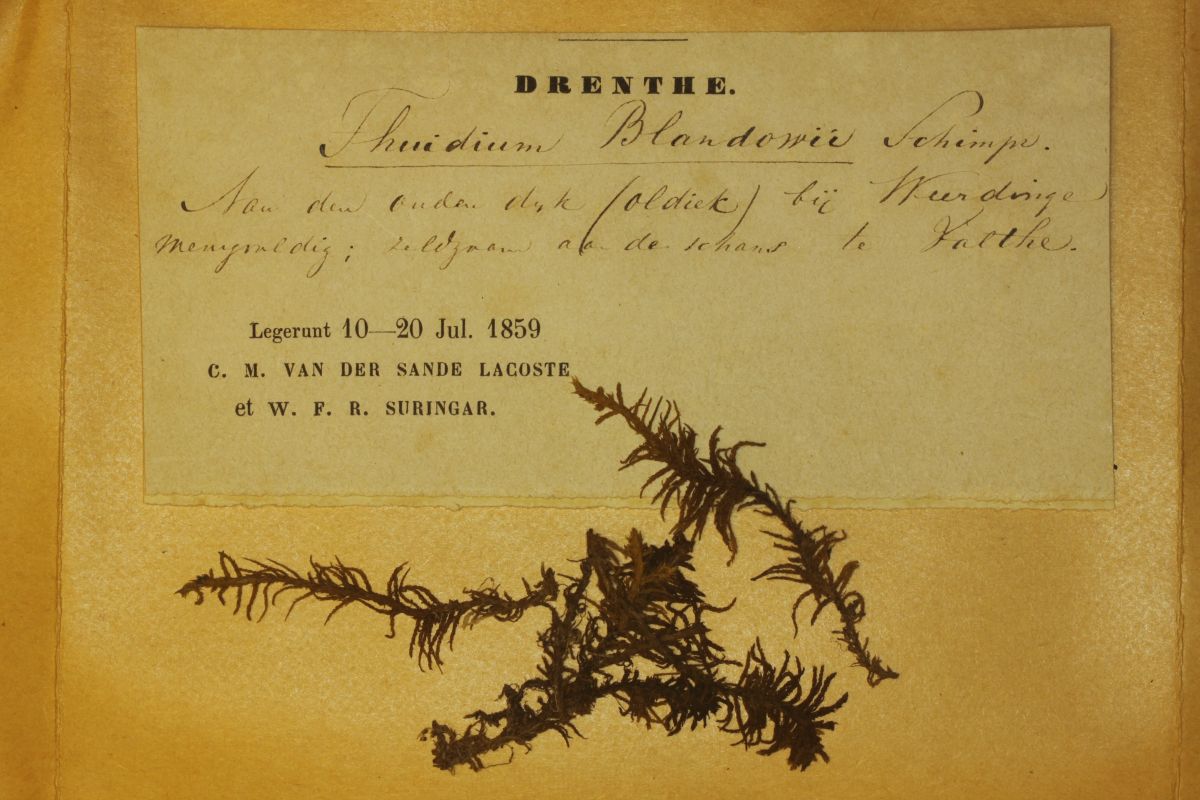 DRENTHE.
Thuidium Blandowii Schimp.
Aan den ouden dijk (oldiek) bij Weerdinge
menigvuldig; zeldzaam aan de schans te Valthe.
Legerunt 10—20 Jul. 1859
C. M. VAN DER SANDE LACOSTE
et W. F. R. SURINGAR.